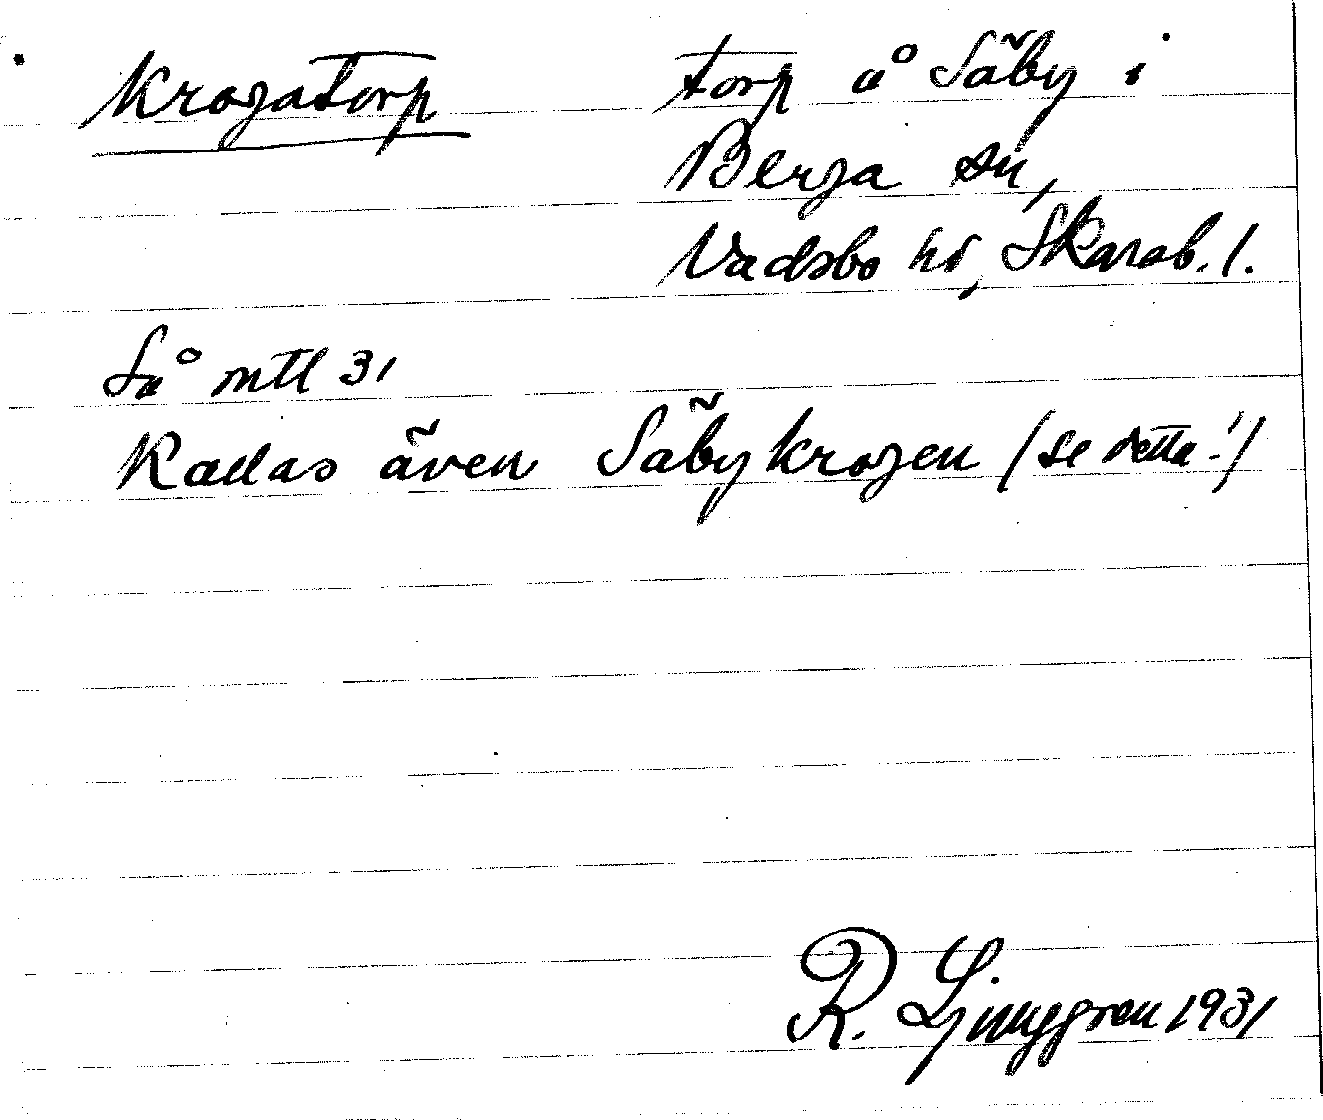 Krogatorp
torp å Säby i
Berga sn,
Vadsbo hd, Skarab. l.
Så mtl 31
Kallas även Säbykrogen (se detta!)
R. Ljunggren 1931